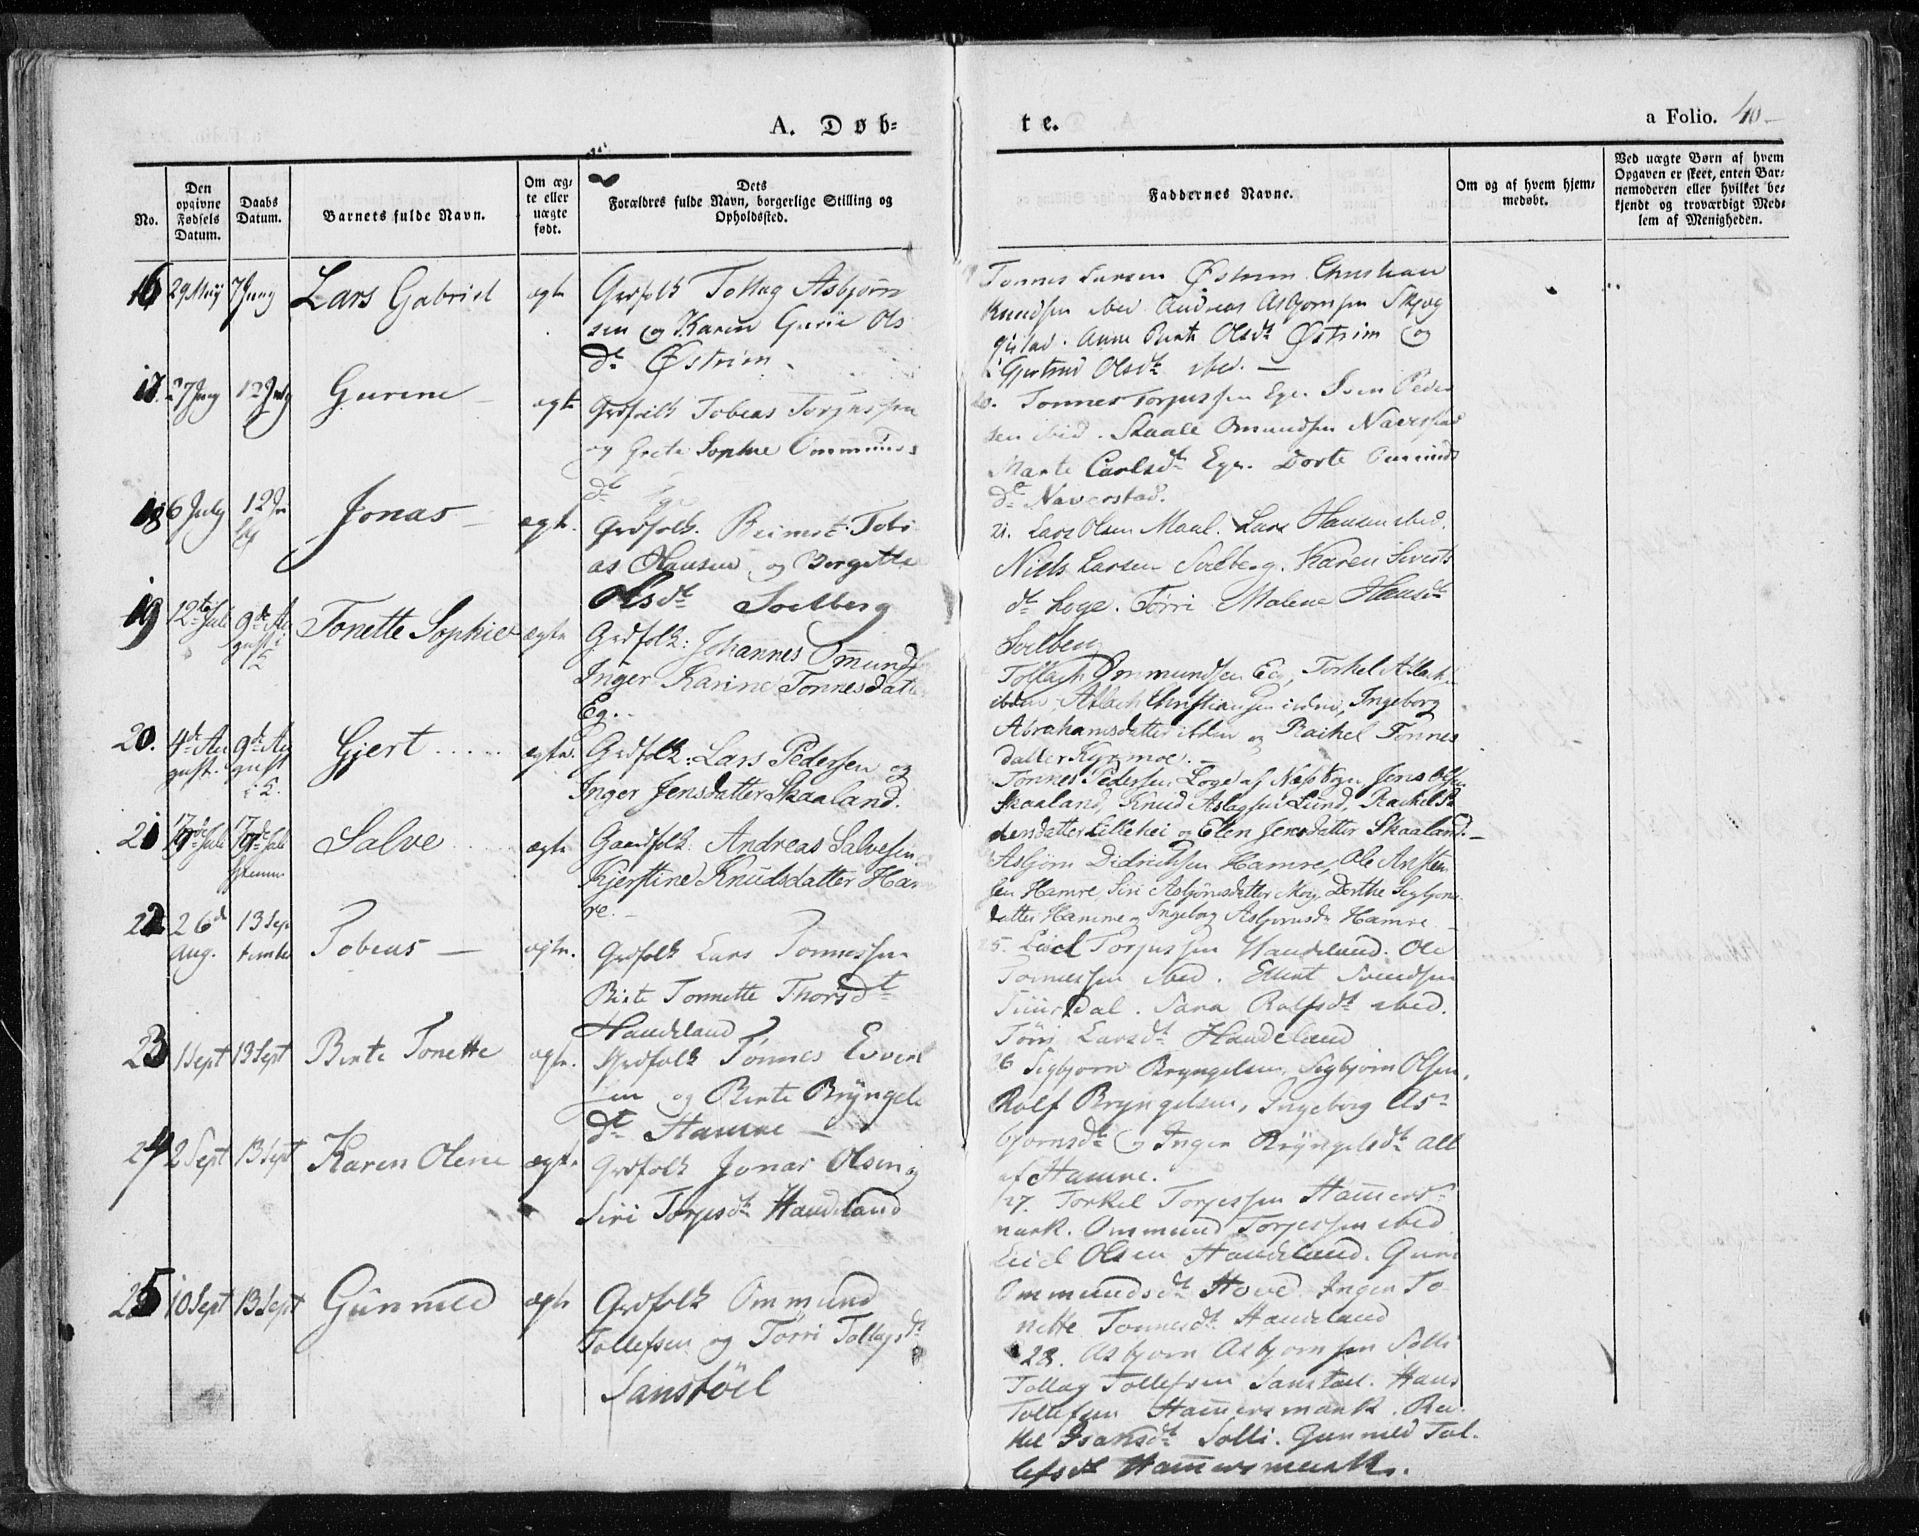 A. Døb-
te.
a Folio. 40
No.
Den opgivne Fødsels Datum.
Daabs Datum.
Barnets fulde Navn.
Om ægte eller uægte født.
Dets Forældres fulde Navn, borgerlige Stilling og Opholdssted.
Faddernes Navne.
Om og af hvem hjemmedøbt.
Ved uægte Børn af hvem Opgaven er skeet, enten Barnemoderen eller hvilket bekjendt og troværdigt Medlem af Menigheden.
16 29 Maij 7 Juny Lars Gabriel ægte
Grdfolk Tollag Asbjørn
sen og Karen Gurie Ols
dt Østrem
Tønnes Larsen Østrem Christian
Knudsen ibid Andreas Asbjørnsen
Anne Berte Olsdt Østrem og
Gjertrud Olsdt ibid.
17. 27 Juny 12 July Gurine ægte
Grdfolk Tobias Torjussen
og Grete Sophie Ommunds
dt Ege
Tønnes Torjussen Ege. Sven Peder
sen ibid. Staale Omundsen Naverstad
Marte Carlsdt Ege. Dorte Omunds
dt Naverstad.
18 6 July 12 July Jonas ægte.
Grdfolk. Tobi
as Hansen og Borgette
Olsdt Soelberg
21. Lars Olsen Maal. Lars Hansen ibid.
Niels Larsen Soelberg. Karen Siverts
dt Loge. Tørri Malene Hansdt
Soelberg
19 12te Juli 9de August i K Tonette Sophie ægte
Grdfolk: Johannes Omunds
Inger Karine Tønnesdatter
Eg.
Tollach Ommundsen Eg, Torkel Atlach
ibdm, Atlach Christiansen ibdm, Ingeborg
Abrahamsdatter ibdm og Rachel Tønnes
datter Kyrmoe.
20. 4de August. 9de August i K. Gjert ægte.
Grdfolk: Lars Pedersen og
Inger Jensdatter Skaaland.
Tønnes Pedersen Loge af Næs Sogn, Jens Olsen
Skaaland, Knud Aslagsen Lund, Rachel
datter Lillehei og Elen Jensdatter Skaaland.
21 Juli Juli hjemme Salve ægte
Gaardfolk Andreas Salvesen
Kjerstine Knudsdatter Ham
re.
Asbjørn Didrichsen Hamre, Ole
sen Hamre, Siri Asbjørnsdatter Moi, Dorthe Sigbjørns
datter Hamre og Ingeborg Asbjørnsdt Hamre
22 26de Aug. 13 September Tobias ægte.
Grdfolk Lars Tønnessen
Birte Tonnette Thorsdt
Haudeland
25. Torjussen Haudeland. Ole
Tønnessen ibid. Svendsen
Suursdal. Sara Rolfsdt ibid.
Tørri Larsdt Haudeland
23 1 Sept 13 Sept Berte Tonette ægte.
Grdfolk Tønnes Evert
sen og Berte Bryngels
dt Hamre
26 Sigbjørn Bryngelsen, Sigbjørn Olsen,
Rolf Bryngelsen, Ingeborg As
bjørnsdt og Inger Bryngelsdt all
af Hamre.
24 2 Sept 13 Sept Karen Olene ægte.
Grdfolk Jonas Olsen og
Siri Torjesdt Haudeland
27. Torkel Torjessen Hamers
mark. Ommund Torjessen ibid
Olsen Haudeland. Guri
Ommundsdt Hove. Inger To
nette Tonnesdt Haudeland
25 10 Sept 13 Sept Gunnild ægte
Grdfolk Ommund
Tollefsen og Tørri Tollagsdt
Sanstöel
28. Asbjørn Asbjørnsen Solli
Tollag Tollefsen Sanstøel. Hans
Tollefsen Hamersmark. Ra
kel Isaksdt Solli. Gunnild Tol
lefsdt Hamersmark.